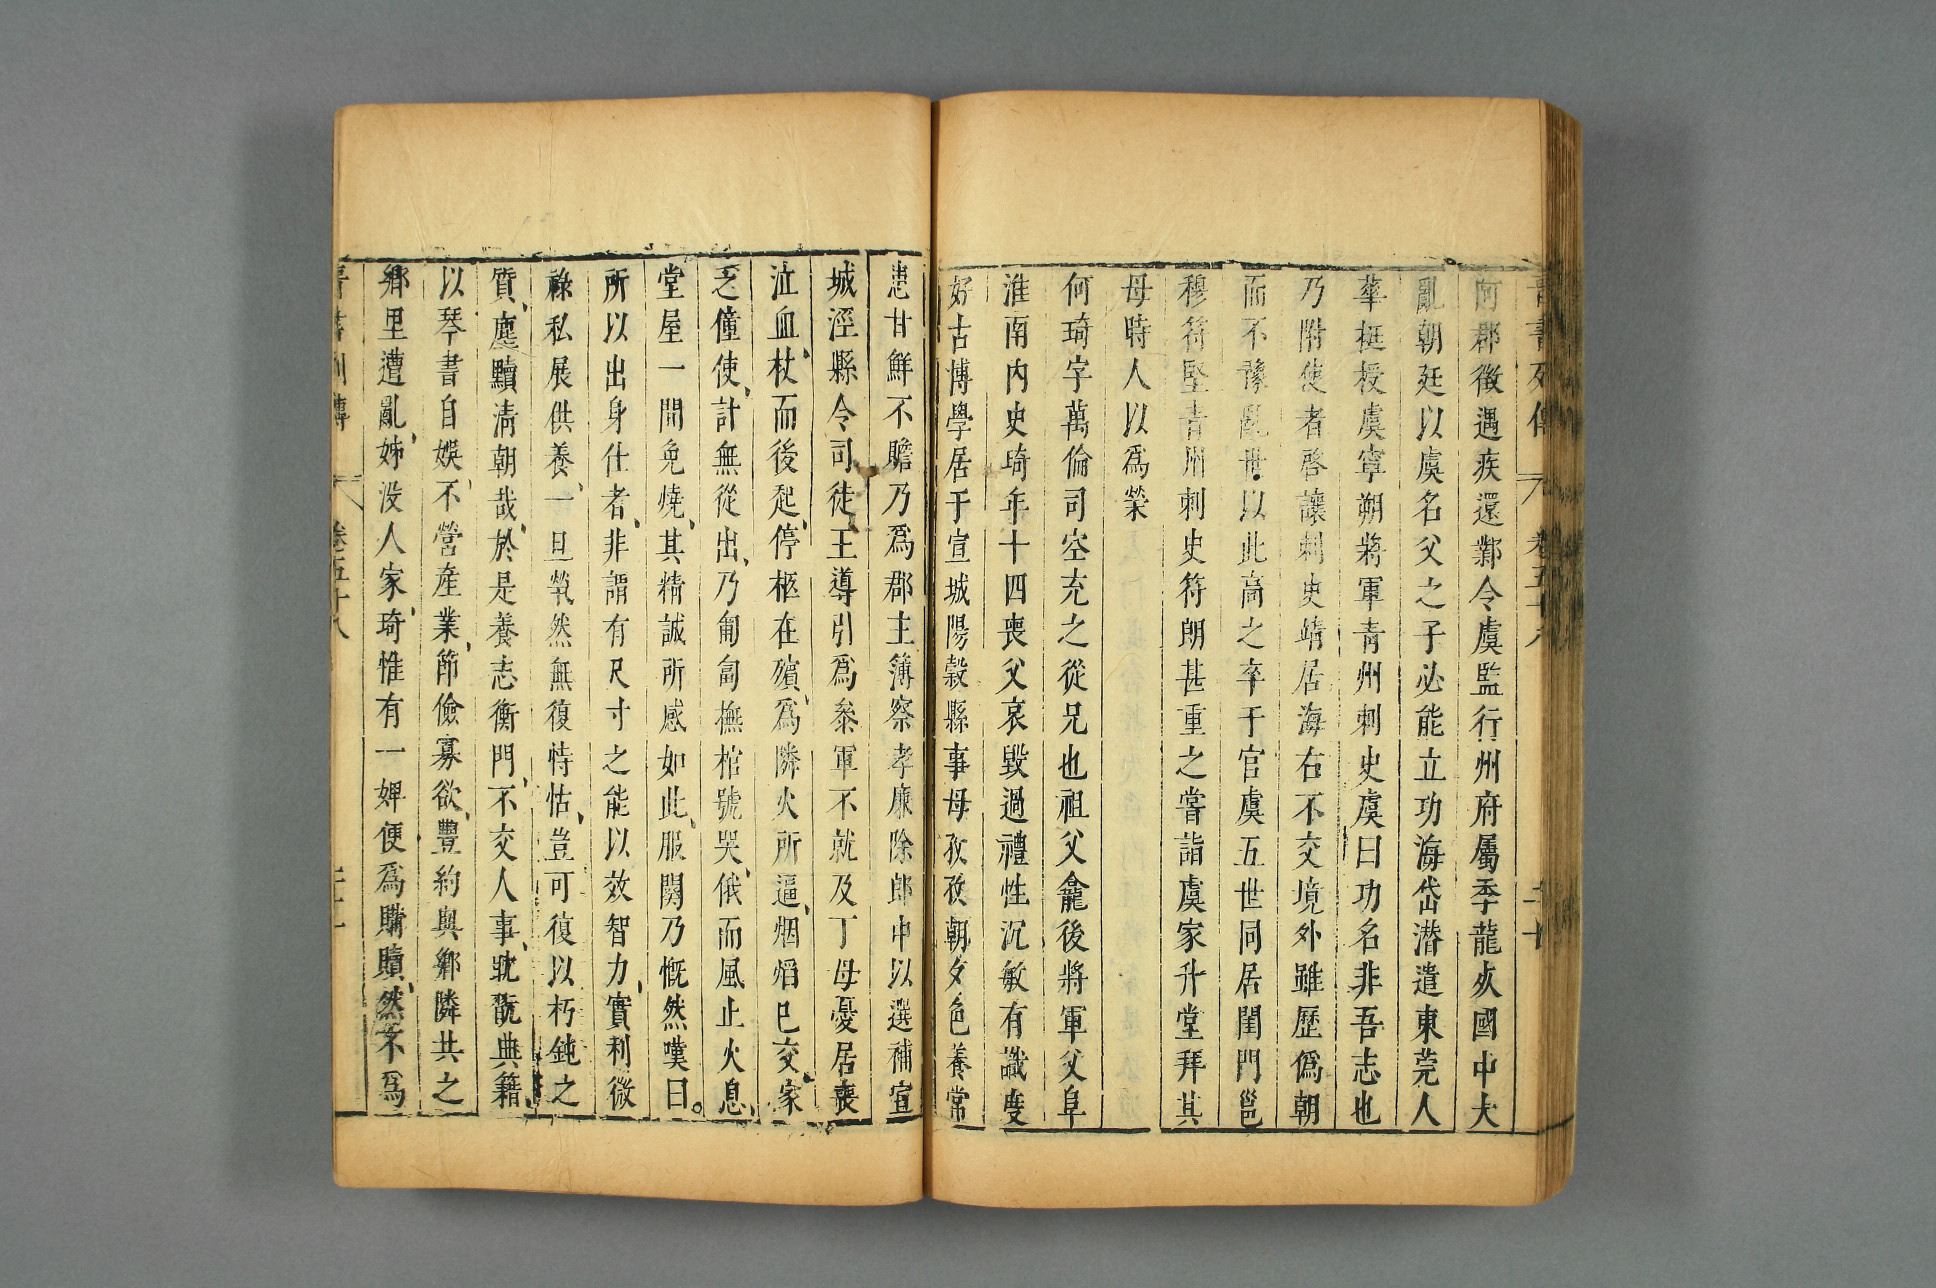 晉書列傳 卷五十八 二十
河郡徵遇疾還鄴令虞監行州府屬季龍死國中大
亂朝廷以虞名父之子必能立功海岱潛遣東莞人
華挺授虞寧朔將軍青州刺史虞曰功名非吾志也
乃附使者啓讓刺史靖居海右不交境外雖歷僞朝
而不豫亂世以此高之卒于官虞五世同居閨門邕
穆符堅青州刺史符朗甚重之嘗詣虞家升堂拜其
母時人以爲榮
何琦字萬倫司空充之從兄也祖父龕後將軍父阜
淮南內史琦年十四喪父哀毀過禮性沉敏有識度
好古博學居于宣城陽穀縣事母孜孜朝夕色養常
患甘鮮不贍乃爲郡主簿察孝廉除郎中以選補宣
城涇縣令司徒王導引爲叅軍不就及丁母憂居喪
泣血杖而後起停柩在殯爲隣火所逼烟熖巳交家
乏僮使計無從出乃匍匐撫棺號哭俄而風止火息
堂屋一間免燒其精誠所感如此服闋乃慨然嘆曰
所以出身仕者非謂有尺寸之能以效智力實利微
祿私展供養一旦煢然無復恃怙豈可復以朽鈍之
質塵黷清朝哉於是養志衡門不交人事躭翫典籍
以琴書自娛不營產業節儉寡欲豐約與鄉隣共之
鄉里遭亂姊沒人家琦惟有一婢便爲購贖然不爲
晉書列傳 卷五十八 二十一